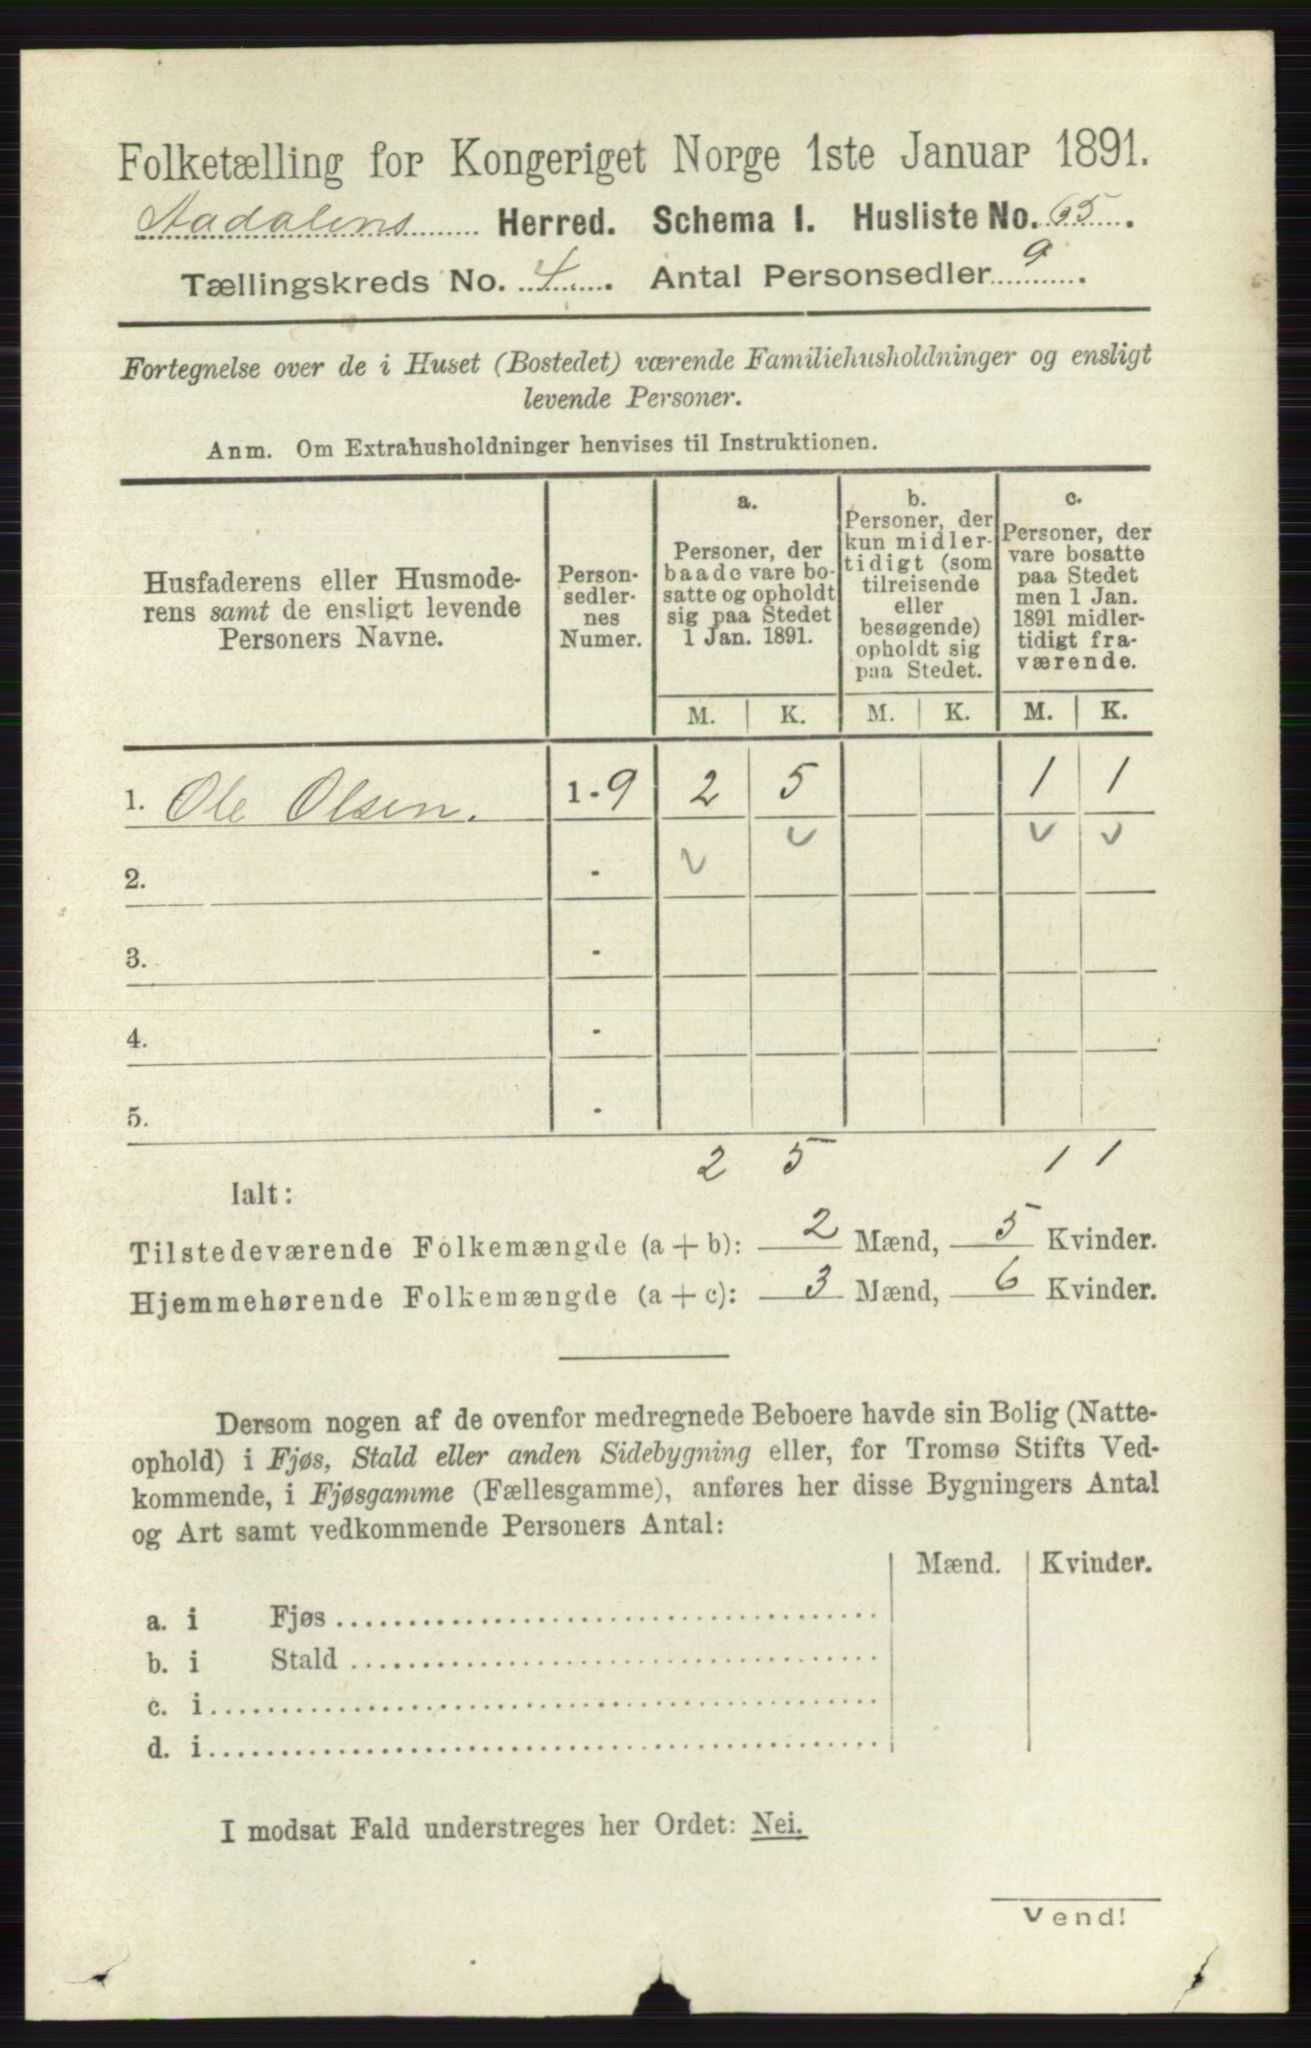 Folketælling for Kongeriget Norge 1ste Januar 1891.
Aadalens Herred. Schema I. Husliste No. 65.
Tællingskreds No. 4. Antal Personsedler 9.
Fortegnelse over de i Huset (Bostedet) værende Familiehusholdninger og ensligt
levende Personer.
Anm. Om Extrahusholdninger henvises til Instruktionen.
Husfaderens eller Husmode-
rens samt de ensligt levende
Personers Navne.
Person-
sedler-
nes
Numer.
a.
Personer, der
baade vare bo-
satte og opholdt
sig paa Stedet
1 Jan. 1891.
b.
Personer, der
kun midler-
tidigt (som
tilreisende
eller
besøgende)
opholdt sig
paa Stedet.
c.
Personer, der
vare bosatte
paa Stedet
men 1 Jan.
1891 midler-
tidigt fra-
værende.
M. K. M. K. M. K.
1. Ole Olsen. 1-9 2 5 1 1
v v v
2. - v
3. -
4. -
5. -
2 5 1 1
Ialt:
Tilstedeværende Folkemængde (a + b): 2 Mænd, 5 Kvinder.
Hjemmehørende Folkemængde (a + c): 3 Mænd, 6 Kvinder.
Dersom nogen af de ovenfor medregnede Beboere havde sin Bolig (Natte-
ophold) i Fjøs, Stald eller anden Sidebygning eller, for Tromsø Stifts Ved-
kommende, i Fjøsgamme (Fællesgamme), anføres her disse Bygningers Antal
og Art samt vedkommende Personers Antal:
Mænd. Kvinder.
a. i Fjøs
b. i Stald
c. i
d. i
I modsat Fald understreges her Ordet: Nei.
Vend!